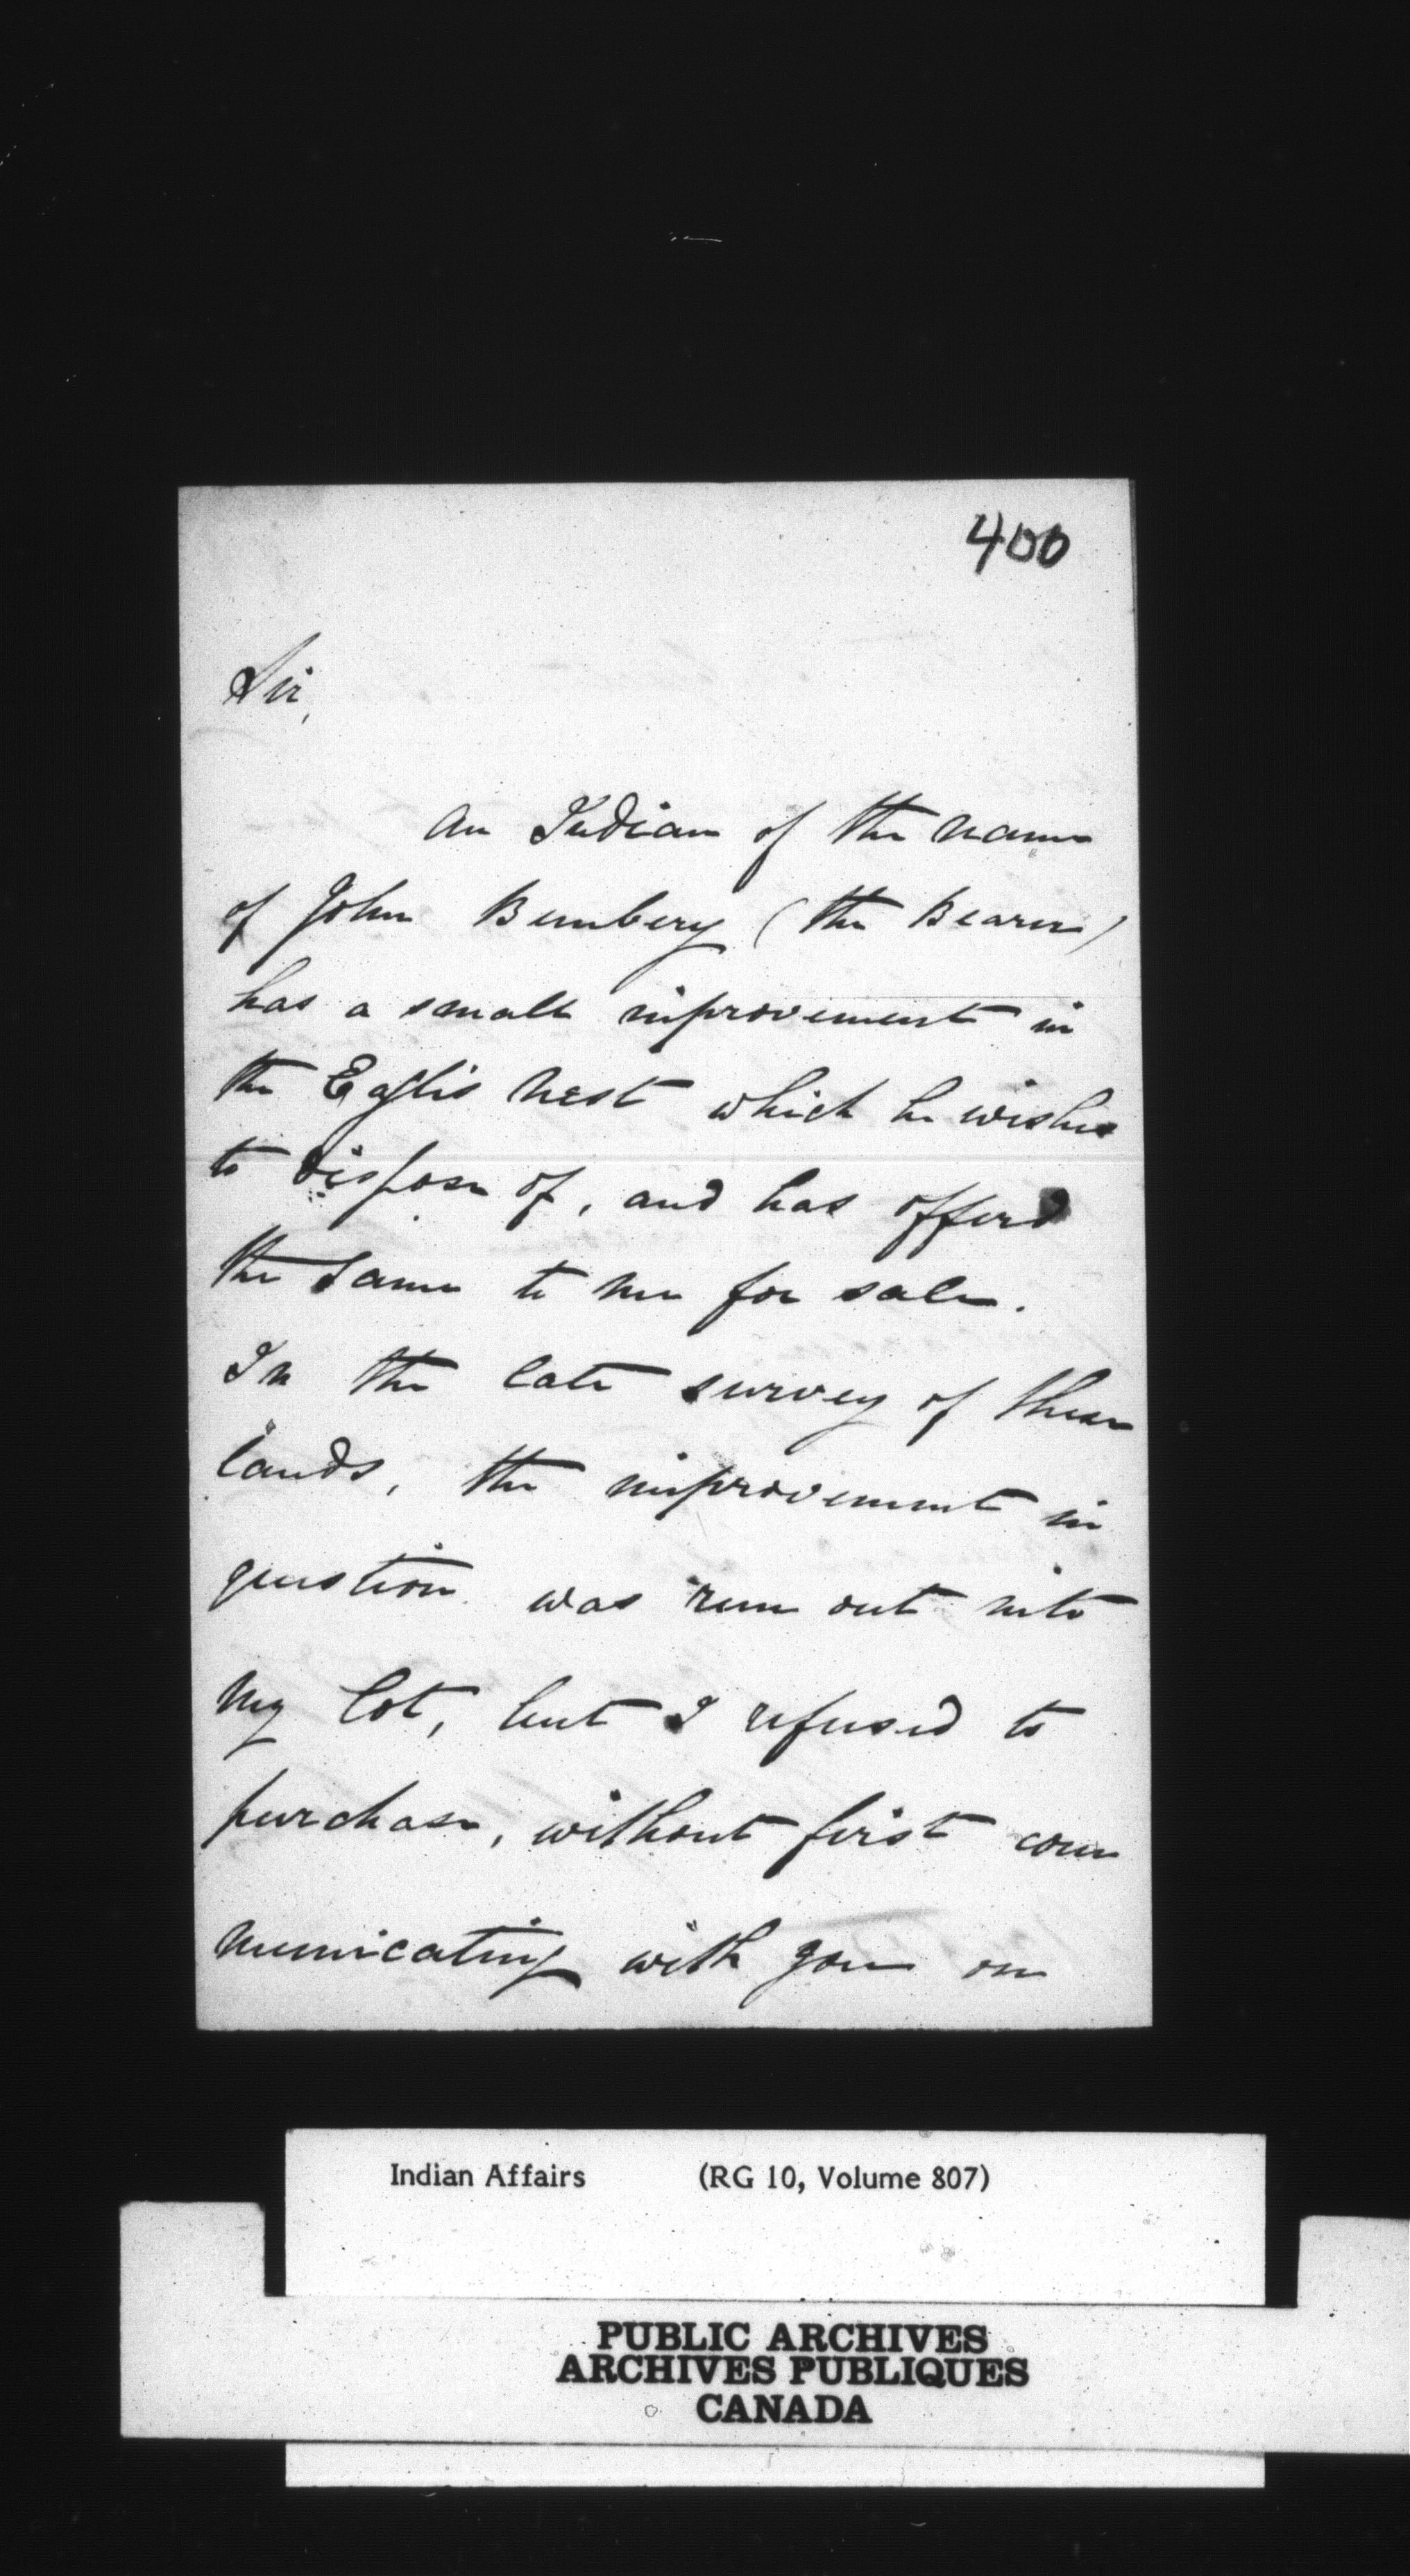 400
Sir,
An Indian of the name
of John Bumbery (the Bearer)
has a small improvement in
the Eagles Nest which he wishes
to dispose of, and has offerd
the same to me for sale.
In the late survey of these
lands, the improvement in
question was run out into
my lot, but I refused to
purchase, without first com
municating with you on
Indian Affairs (RG 10, Volume 807)
PUBLIC ARCHIVES
ARCHIVES PUBLIQUES
CANADA